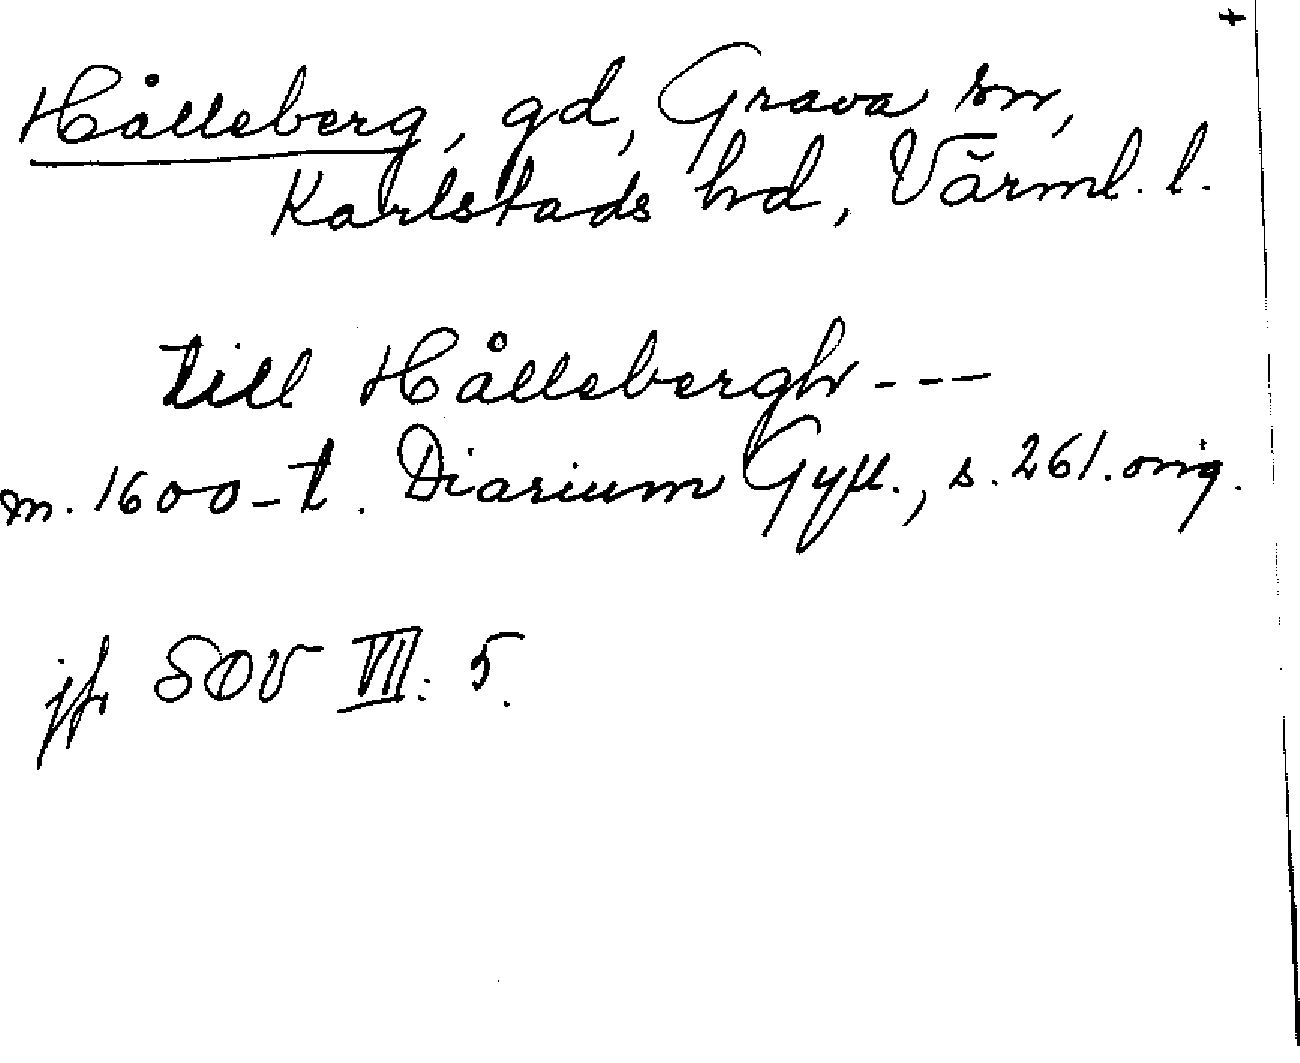 +
Hålleberg, gd, Grava sn,
Karlstads hd, Värml. l.
till Hållebergh ---
m. 1600-t. Diarium Gyll., s. 261. orig.
jfr SOV VII: 5.